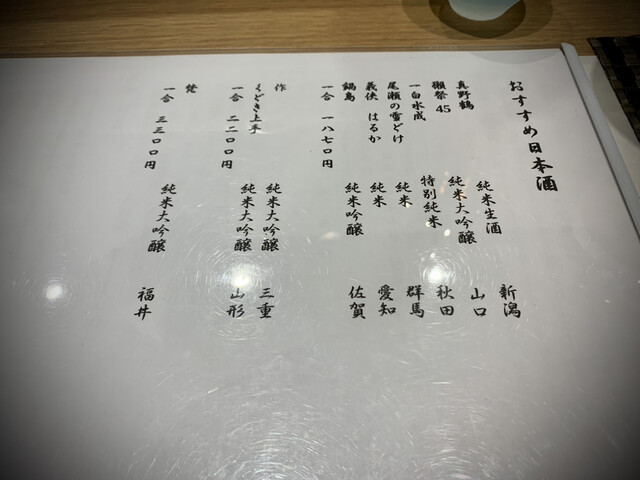 おすすめ日本酒
真野鶴 純米生酒 新潟
獺祭 45 純米大吟醸 山口
一白水成 特別純米 秋田
尾瀬の雪どけ 純米 群馬
義侠 はるか 純米 愛知
鍋島 純米吟醸 佐賀
一合 一八七〇円
作 純米大吟醸 三重
くどき上手 純米大吟醸 山形
一合 二二〇〇円
梵 純米大吟醸 福井
一合 三三〇〇円